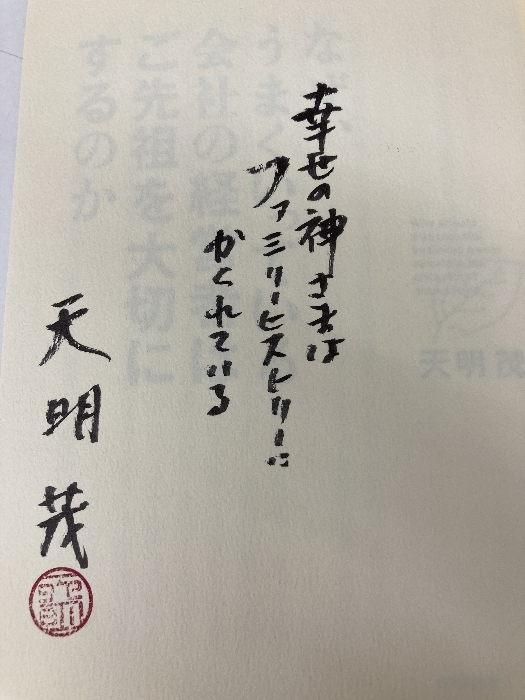 幸せの神さまは
ファミリーヒストリーに
かくれている
天明 茂
なぜ、
うまくいっている
会社の経営者は
ご先祖を大切に
するのか
天明 茂